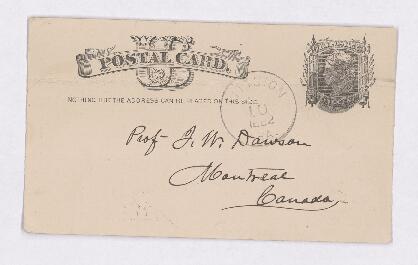 POSTAL CARD.
NOTHING BUT THE ADDRESS CAN BE PLACED ON THIS SIDE.
10
1882
Prof J. W. Dawson
Montreal
Canada